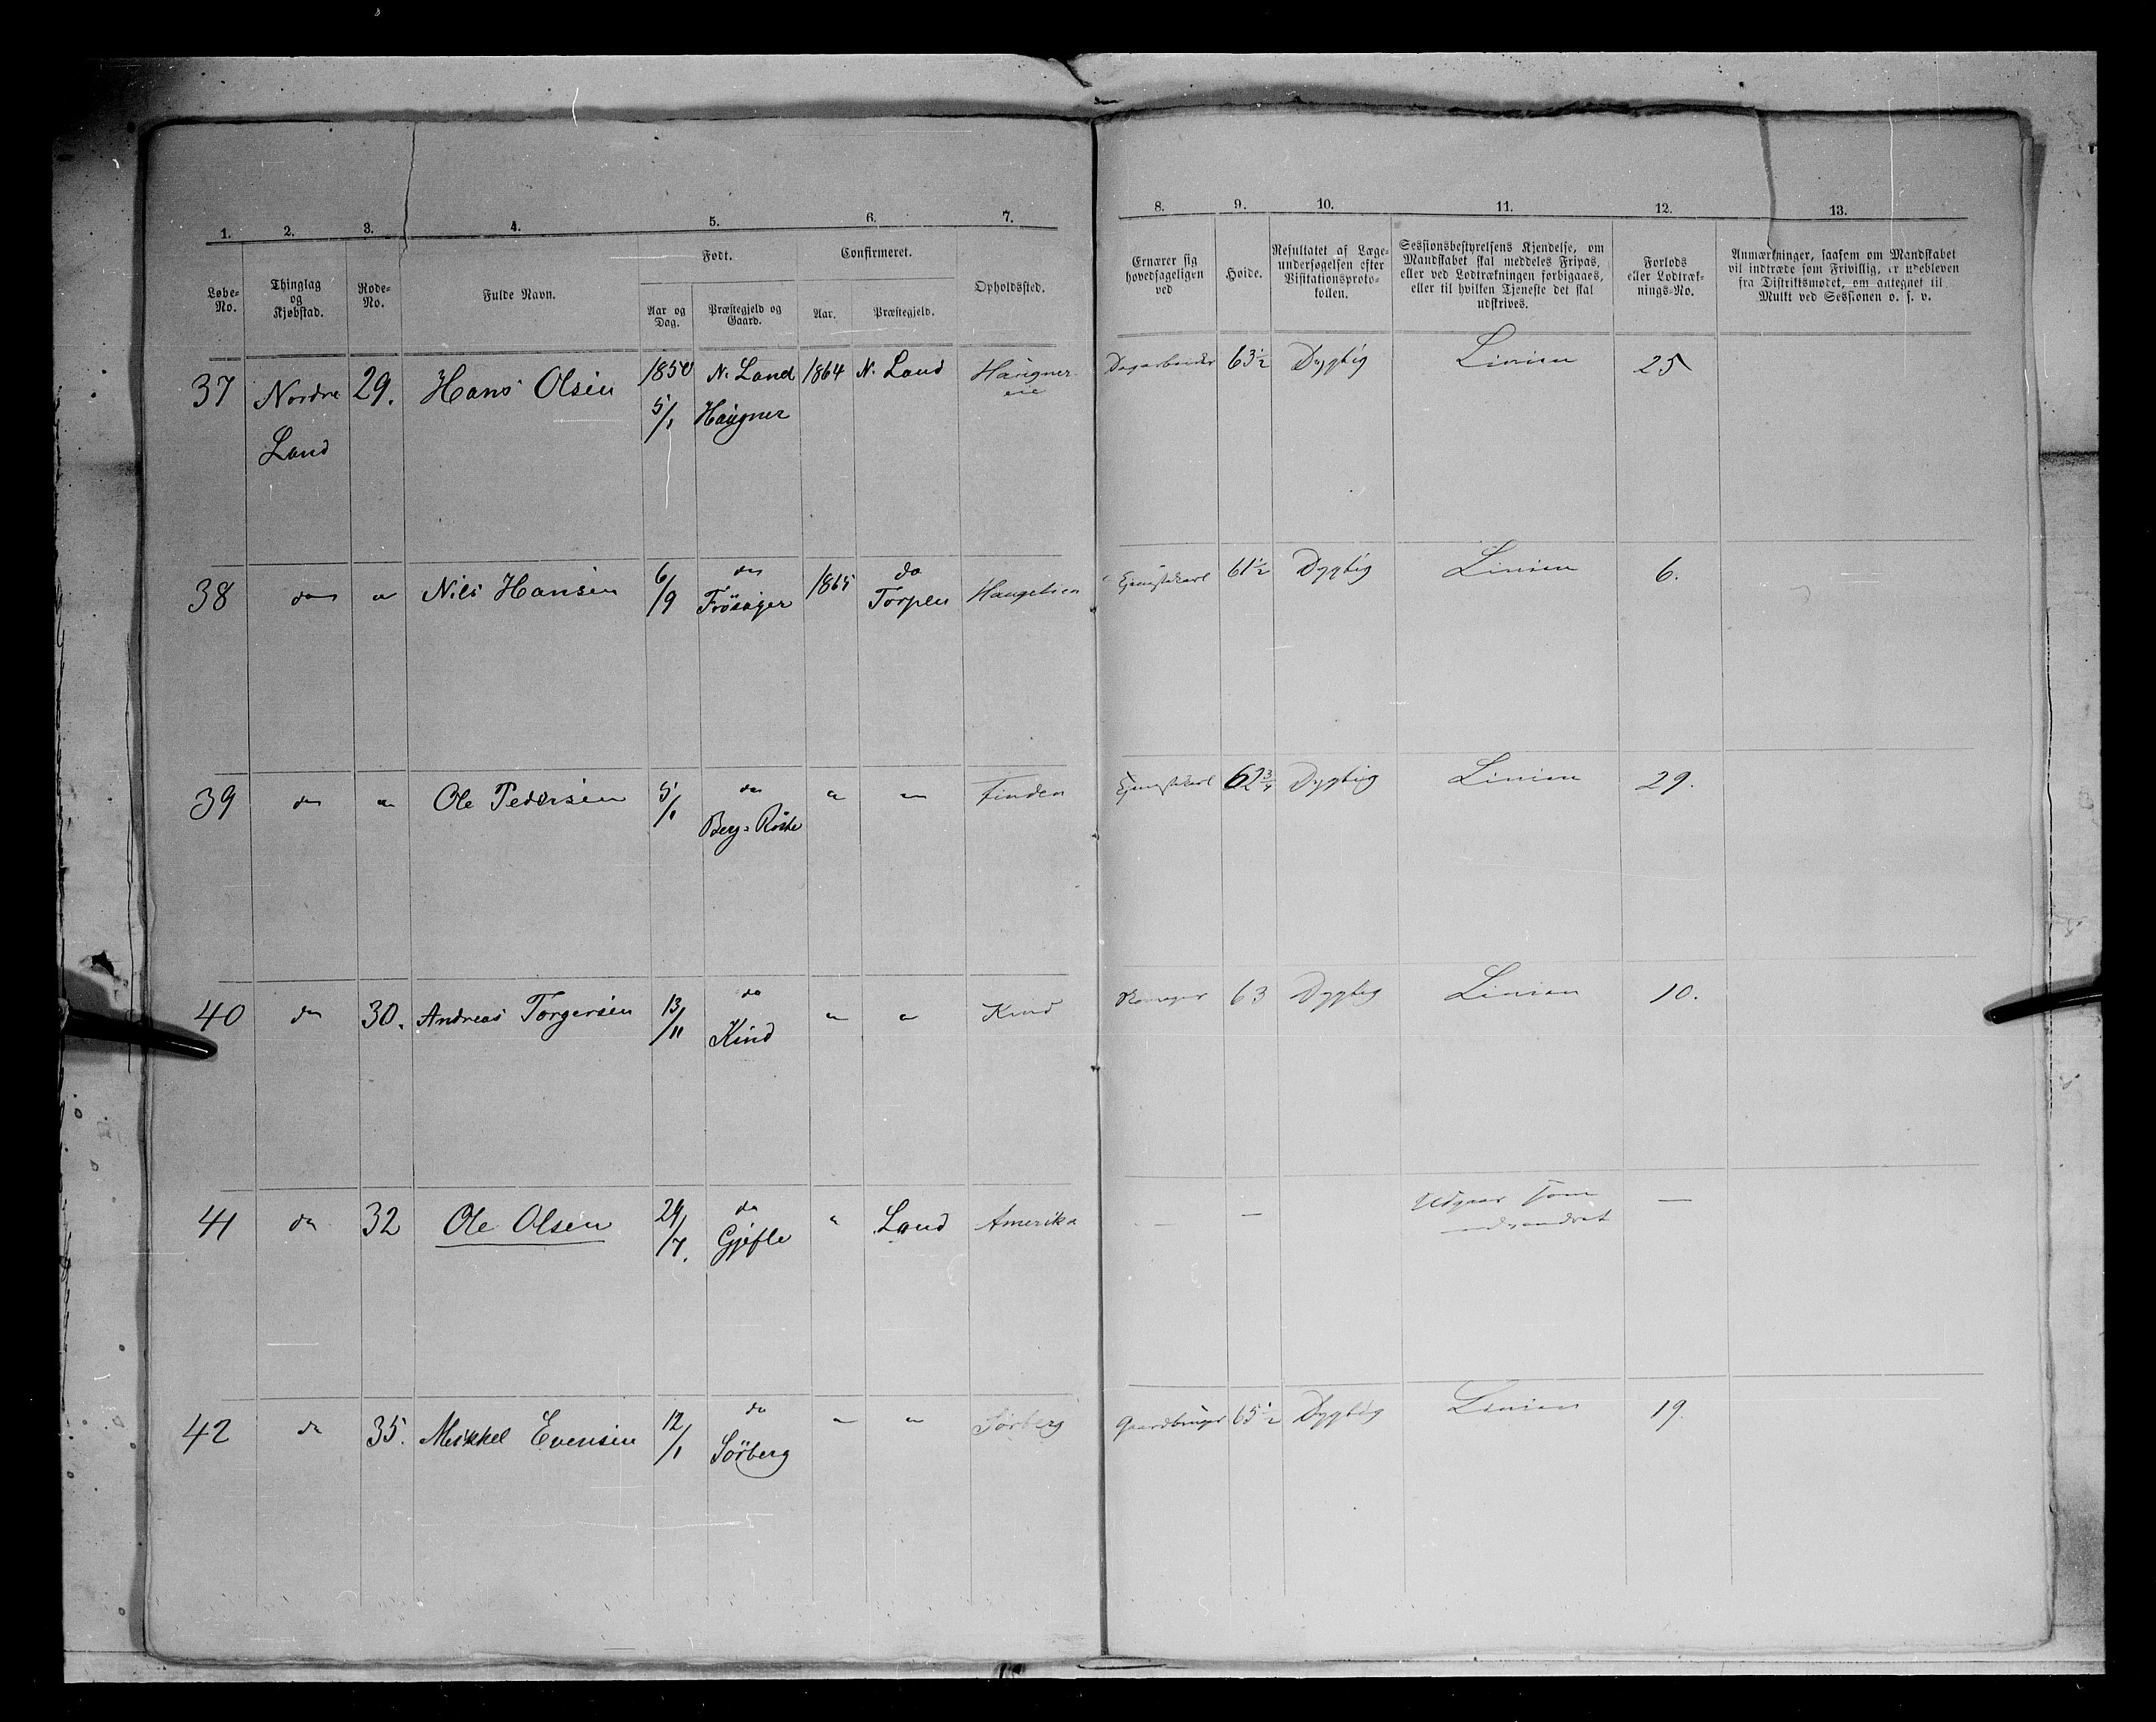 1. 2. 3. 4. 5. 6. 7. 8. 9. 10. 11. 12. 13.
Løbe-No.
Thinglag og Kjøbstad.
Rode-No.
Fulde Navn.
Født.
Aar og Dag.
Præstegjeld og Gaard.
Confirmeret.
Aar.
Præstegjeld.
Opholdssted.
Ernærer sig hovedsageligen ved
Høide.
Resultatet af Læge-undersøgelsen efter Visitationsproto-kollen.
Sessionsbestyrelsens Kjendelse, om Mandskabet skal meddeles Fripas, eller ved Lodtrækningen forbigaaes, eller til hvilken Tjeneste det skal udskrives.
Forlods eller Lodtræk-nings-No.
Anmærkninger, saasom om Mandskabet vil indtræde som Frivillig, er udebleven fra Distriktsmødet, om antegnet til Mulkt ved Sessionen o. s. v.
37 Nordre 29. Hans Olsen 1850 N. Land 1864 N. Land Haugner- Dagarbeider 63½ Dygtig Linien 25
Land 5/1 Haugner eie
38 do " Nils Hansen 6/9 do 1865 do Haugelien Tjenestekarl 61½ Dygtig Linien 6.
Frösager Torpen
39 do " Ole Pedersen 5/1 do " " Finden Tjenestekarl 62¾ Dygtig Linien 29.
Berg-Röste
40 do 30. Andreas Torgersen 13/11 do " " Kind 63 Dygtig Linien 10.
Kind
41 do 32 Ole Olsen 29/7. do " Land Amerika — — Udgaar som —
Gjefle udvandret
42 do 35. Mikkel Evensen 12/1 do " " Sörberg Gaardbruger 65½ Dygtig Linien 19.
Sörberg